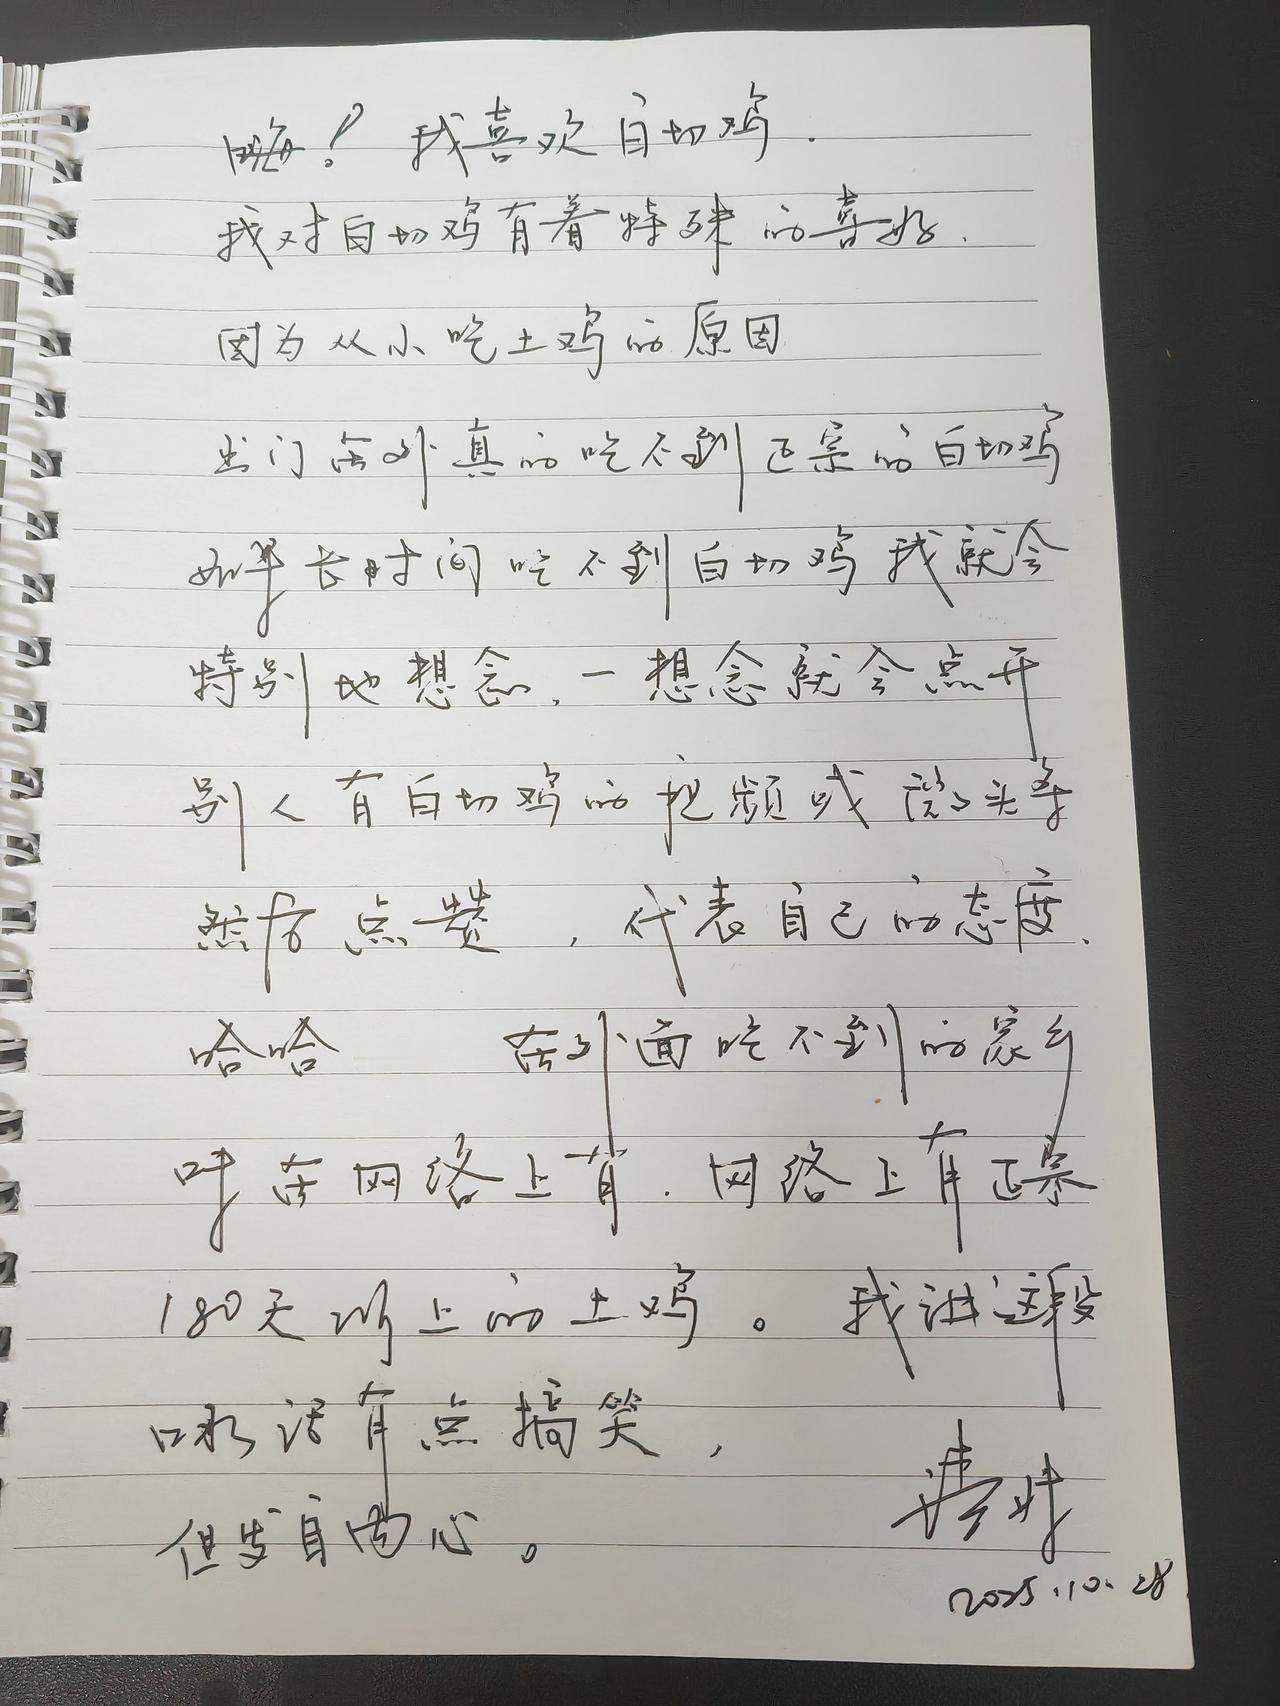 嗨！我喜欢白切鸡.
我对白切鸡有着特殊的喜好.
因为从小吃土鸡的原因
出门在外真的吃不到正宗的白切鸡
如果长时间吃不到白切鸡我就会
特别地想念,一想念就会点开
别人有白切鸡的视频或镜头等
然后点赞,代表自己的态度.
哈哈 在外面吃不到的家乡
味在网络上有.网络上有正宗
180天以上的土鸡。我讲这段
口水话有点搞笑,
但发自内心。
2025.10.28